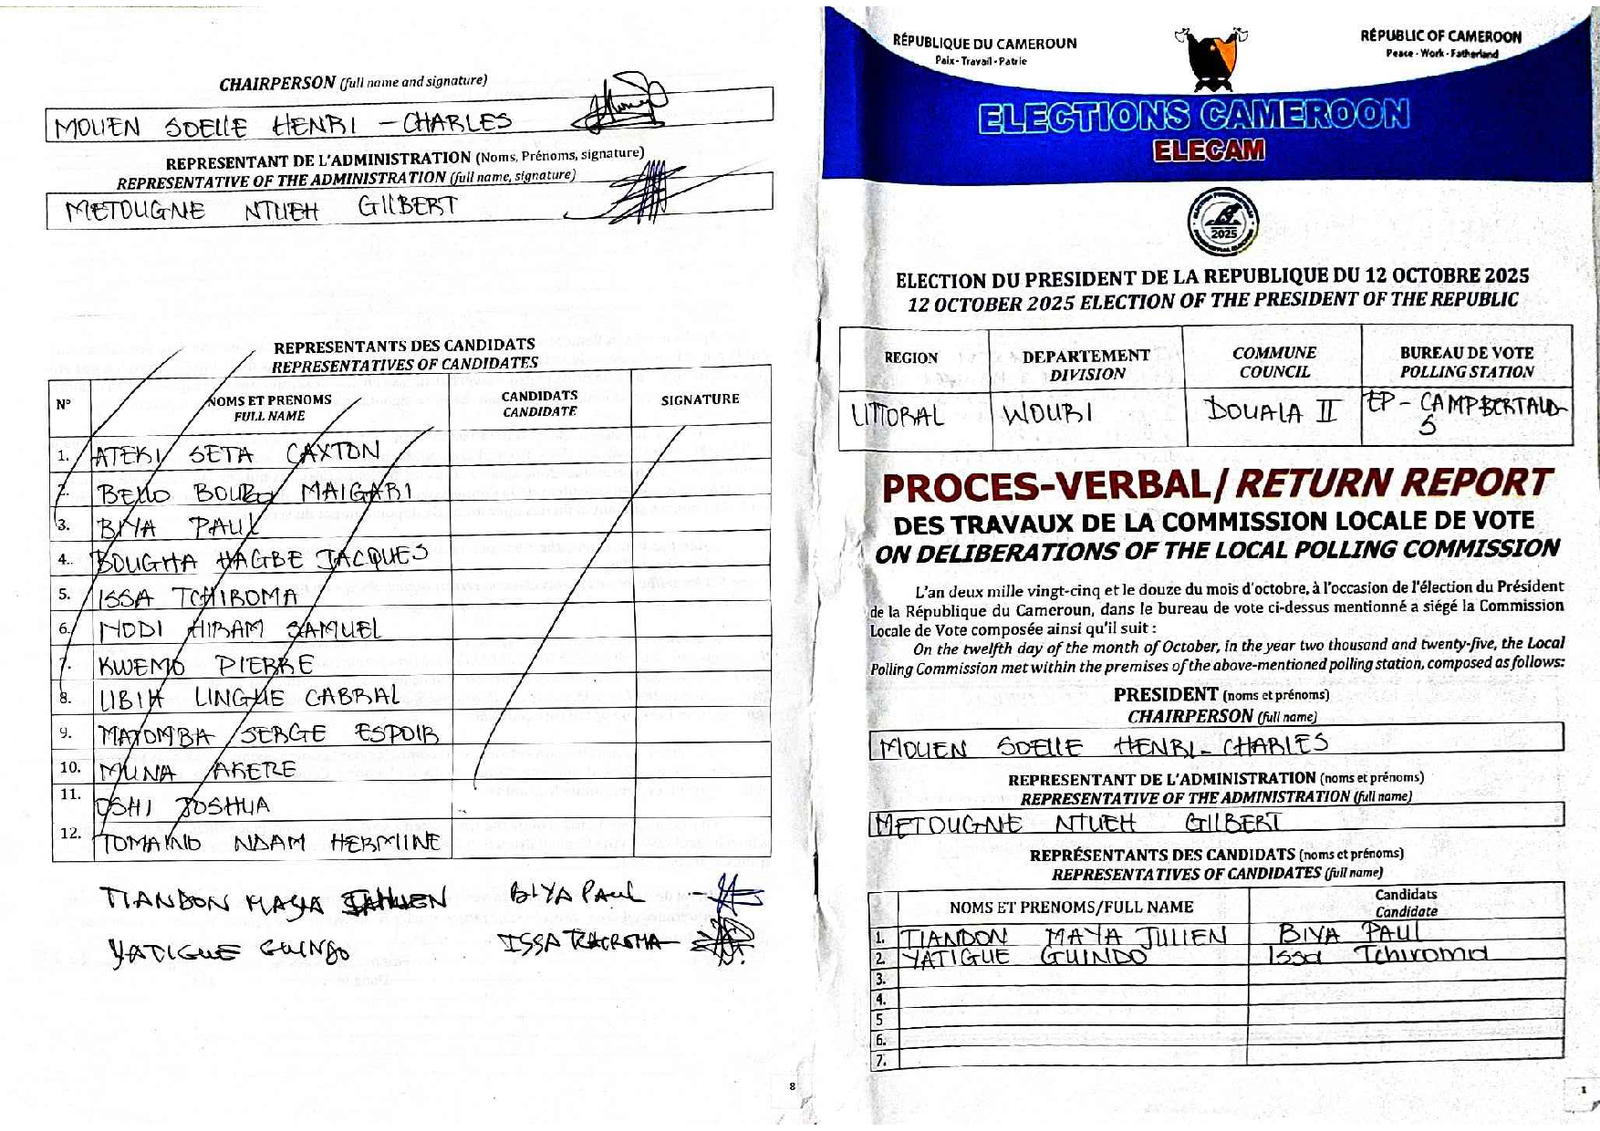 CHAIRPERSON (full name and signature)
MOUEN SDELLE HENRI - CHARLES
REPRESENTANT DE L'ADMINISTRATION (Noms, Prénoms, signature)
REPRESENTATIVE OF THE ADMINISTRATION (full name, signature)
METOUGNE NTUEH GILBERT
REPRESENTANTS DES CANDIDATS
REPRESENTATIVES OF CANDIDATES
N° NOMS ET PRENOMS CANDIDATS SIGNATURE
FULL NAME CANDIDATE
1. ATEKI SETA CAXTON
2. BELLO BOUBA MAIGARI
3. BIYA PAUL
4.. BOUGHA HAGBE JACQUES
5. ISSA TCHIROMA
6. IYODI HIRAM SAMUEL
7. KWEMO PIERRE
8. LIBIH LINGUE CABRAL
9. MATOMBA SERGE ESPOIR
10. MUNA AKERE
11. OSHI JOSHUA
12. TOMAINO NDAM HERMINE
TIANDON MAYA BIYA PAUL
YATIGUE GUINDO ISSA
8
RÉPUBLIQUE DU CAMEROUN
Paix - Travail - Patrie
RÉPUBLIC OF CAMEROON
Peace - Work - Fatherland
ELECTIONS CAMEROON
ELECAM
2025
ELECTION DU PRESIDENT DE LA REPUBLIQUE DU 12 OCTOBRE 2025
12 OCTOBER 2025 ELECTION OF THE PRESIDENT OF THE REPUBLIC
REGION DEPARTEMENT COMMUNE BUREAU DE VOTE
DIVISION COUNCIL POLLING STATION
LITTORAL WOURI DOUALA II EP - CAMPBERTAUD-
5
PROCES-VERBAL/ RETURN REPORT
DES TRAVAUX DE LA COMMISSION LOCALE DE VOTE
ON DELIBERATIONS OF THE LOCAL POLLING COMMISSION
L'an deux mille vingt-cinq et le douze du mois d'octobre, à l'occasion de l'élection du Président
de la République du Cameroun, dans le bureau de vote ci-dessus mentionné a siégé la Commission
Locale de Vote composée ainsi qu'il suit :
On the twelfth day of the month of October, in the year two thousand and twenty-five, the Local
Polling Commission met within the premises of the above-mentioned polling station, composed as follows:
PRESIDENT (noms et prénoms)
CHAIRPERSON (full name)
MOUEN SDELLE HENRI - CHARLES
REPRESENTANT DE L'ADMINISTRATION (noms et prénoms)
REPRESENTATIVE OF THE ADMINISTRATION (full name)
METOUGNE NTUEH GILBERT
REPRÉSENTANTS DES CANDIDATS (noms et prénoms)
REPRESENTATIVES OF CANDIDATES (full name)
NOMS ET PRENOMS/FULL NAME Candidats
Candidate
1. TIANDON MAYA JULIEN BIYA PAUL
2. YATIGUE GUINDO Issa Tchiroma
3.
4.
5
6.
7.
1